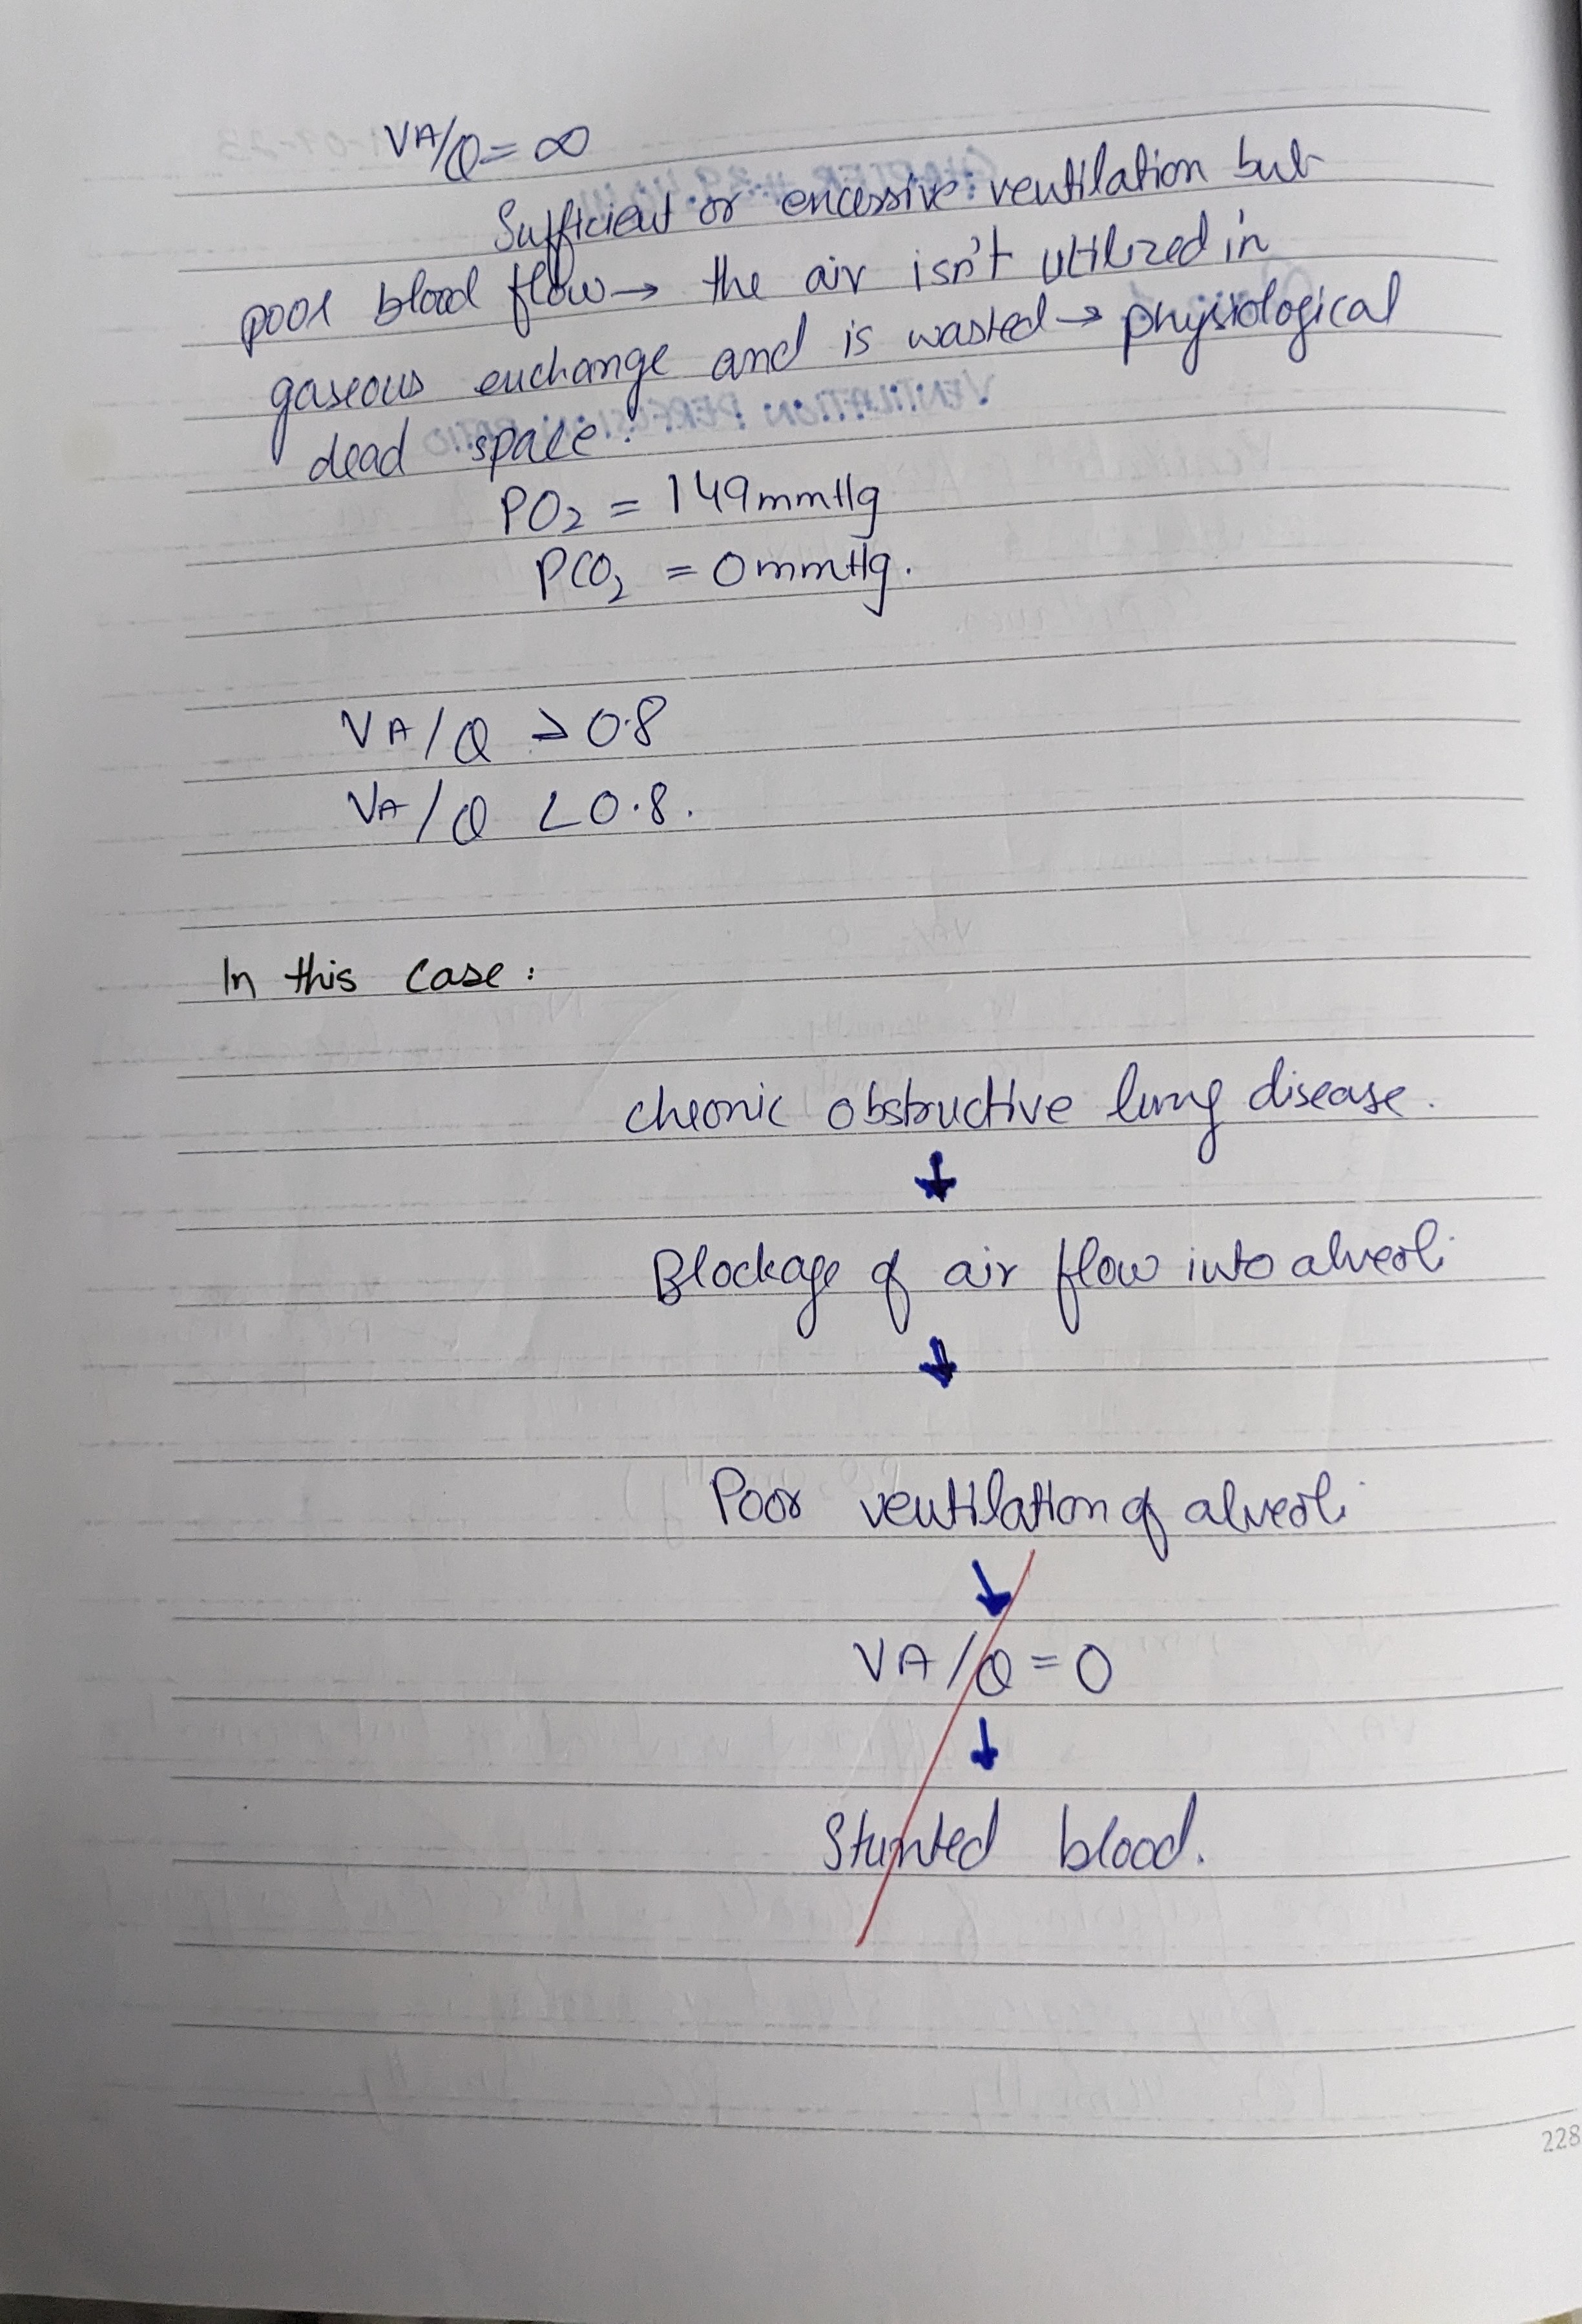 VA/Q = ∞
Sufficient or encessive ventilation but
poor blood flow → the air isn't utilized in
gaseous enchange and is wasted → physiological
dead space.
PO₂ = 149mmHg
PCO₂ = 0mmHg.
VA/Q > 0.8
VA/Q < 0.8.
In this case:
chronic obstructive lung disease.
↓
Blockage of air flow into alveoli
↓
Poor ventilation of alveoli
↓
VA/Q = 0
↓
Stunted blood.
228